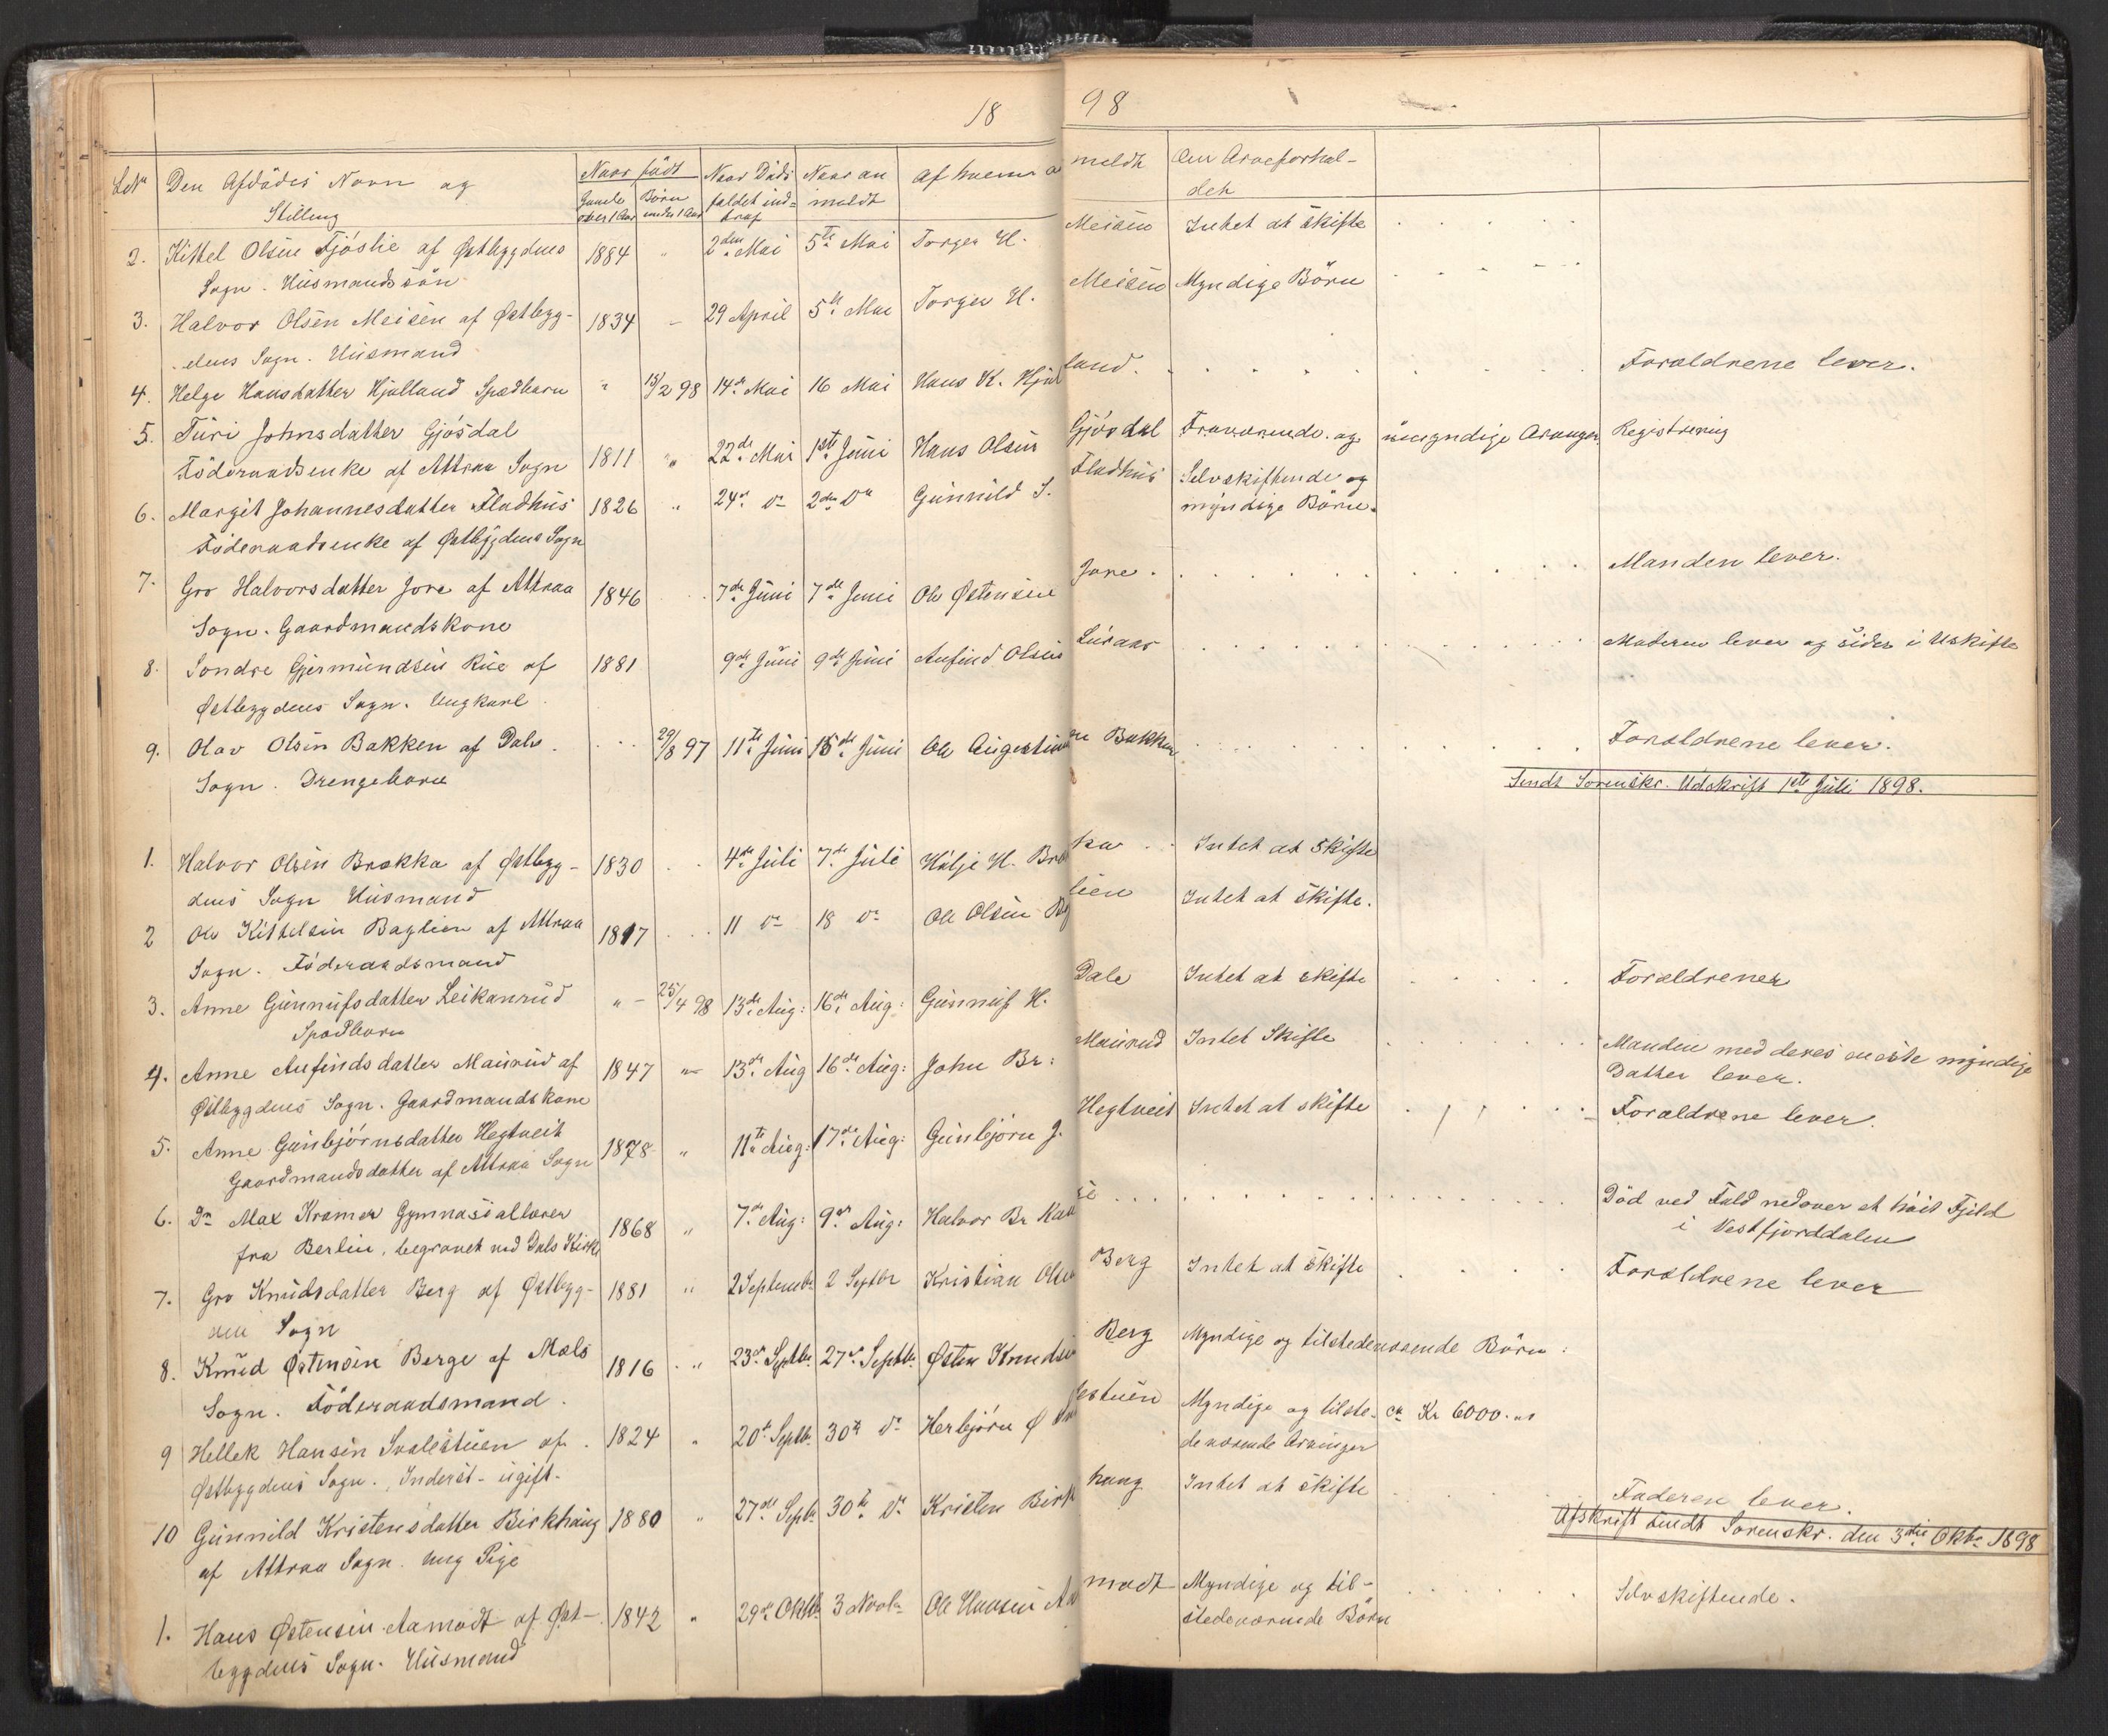 18 98
Lnr Den Afdödes Navn og Stilling Naar födt Gamle over 1 Aar Börn under 1 Aar Naar Dödsfaldet indtraf Naar anmeldt Af hvem anmeldt Om Arveforholdet
2. Kittel Olsen Fjöslie af Østbygdens 1884 " 2den Mai 5te Mai Torger H. Meisen Intet at skifte
Sogn. Husmandssön
3. Halvor Olsen Meisen af Østbyg- 1834 - 29 April 5te Mai Torger H. Meisen Myndige Börn
dens Sogn. Husmand
4. Helge Hansdatter Hjolland Spædbarn " 15/2 98 14de Mai 16 Mai Hans K. Hjolland. Forældrene lever.
5. Turi Johnsdatter Gjösdal
Föderaadsenke af Attraa Sogn 1811 " 22de Mai 1ste Juni Hans Olsen Gjösdal Fraværende og umyndige Arvinger Registrering
6. Margit Johannesdatter Fladhus 1826 " 24de Do 2den Do Gunnild S. Fladhus Selvskiftende og
Föderaadsenke af Østbygdens Sogn myndige Börn.
7. Gro Halvorsdatter Jore af Attraa 1846 7de Juni 7de Juni Ole Østensen Jore. Manden lever.
Sogn. Gaardmandskone
8. Sondre Gjermundsen Rue af 1881 9de Juni 9de Juni Aufind Olsen Luraas Moderen lever og sider i Uskifte
Østbygdens Sogn. Ungkarl.
9. Olav Olsen Bakken af Dals 29/8 97 11te Juni 15de Juni Ole Augestinen Bakken Forældrene lever.
Sogn. Drengebarn
Sendt Sorenskr. Udskrift 1ste Juli 1898.
1. Halvor Olsen Brokka af Østbyg- 1830 4de Juli 7de Juli Hölje H. Brokka Intet at skifte
dens Sogn Husmand
2 Ole Kittelsen Baglien af Attraa 1817 11 Do 18 Do Ole Olsen Baglien Intet at skifte.
Sogn. Föderaadsmand
3. Anne Gunnufsdatter Leikanrud " - 25/4 98 13de Aug: 16de Aug: Gunnuf H. Dale Intet at skifte Forældrener
Spædbarn
4. Anne Aufindsdatter Maurud af 1847 " 13de Aug 16de Aug: John Br: Maurud Intet Skifte Manden med deres eneste myndige
Østbygdens Sogn. Gaardmandskone Datter lever.
5. Anne Gunbjörnsdatter Hegtveit 1878 " 11te Aug: 17de Aug: Gunbjörn G. Hegtveit Intet at skifte Forældrene lever.
Gaardmandsdatter af Attraa Sogn
6. Dr Max Kramer Gymnasiallærer 1868 " 7de Aug: 9de Aug: Halvor Br Död ved Fald nedover et höit Fjeld
fra Berlin, begravet ved Dals Kirke i Vestfjorddalen
7. Gro Knudsdatter Berg af Østbyg- 1881 " 2 Septembr 2 Septbr Kristian Olsen Berg Intet at skifte Forældrene lever
den Sogn
8. Knud Østensen Berge af Mæls 1816 " 23de Septbr. 27de Septbr. Østen Knudsen Berg Myndige og tilstedeværende Börn.
Sogn. Föderaadsmand.
9 Hellek Hansen Svalestuen af 1824 " 20de Septbr. 30te Do Herbjörn Ø Svalestuen Myndige og tilste- ca Kr 6000.
Østbygdens Sogn. Inderst - ugift. deværende Arvinger
10 Gunnild Kristensdatter Birkhaug 1880 " 27de Septbr 30te Do Kristen Birkhaug Intet at skifte Faderen lever.
af Attraa Sogn. ung Pige
Afskrift sendt Sorenskr. den 3die Oktbr 1898
1. Hans Østensen Aamodt af Øst- 1842 " 29de Oktbr 3 Novbr Ole Hansen Aamodt Myndige og til- Selvskiftende.
bygdens Sogn. Husmand stedeværende Börn